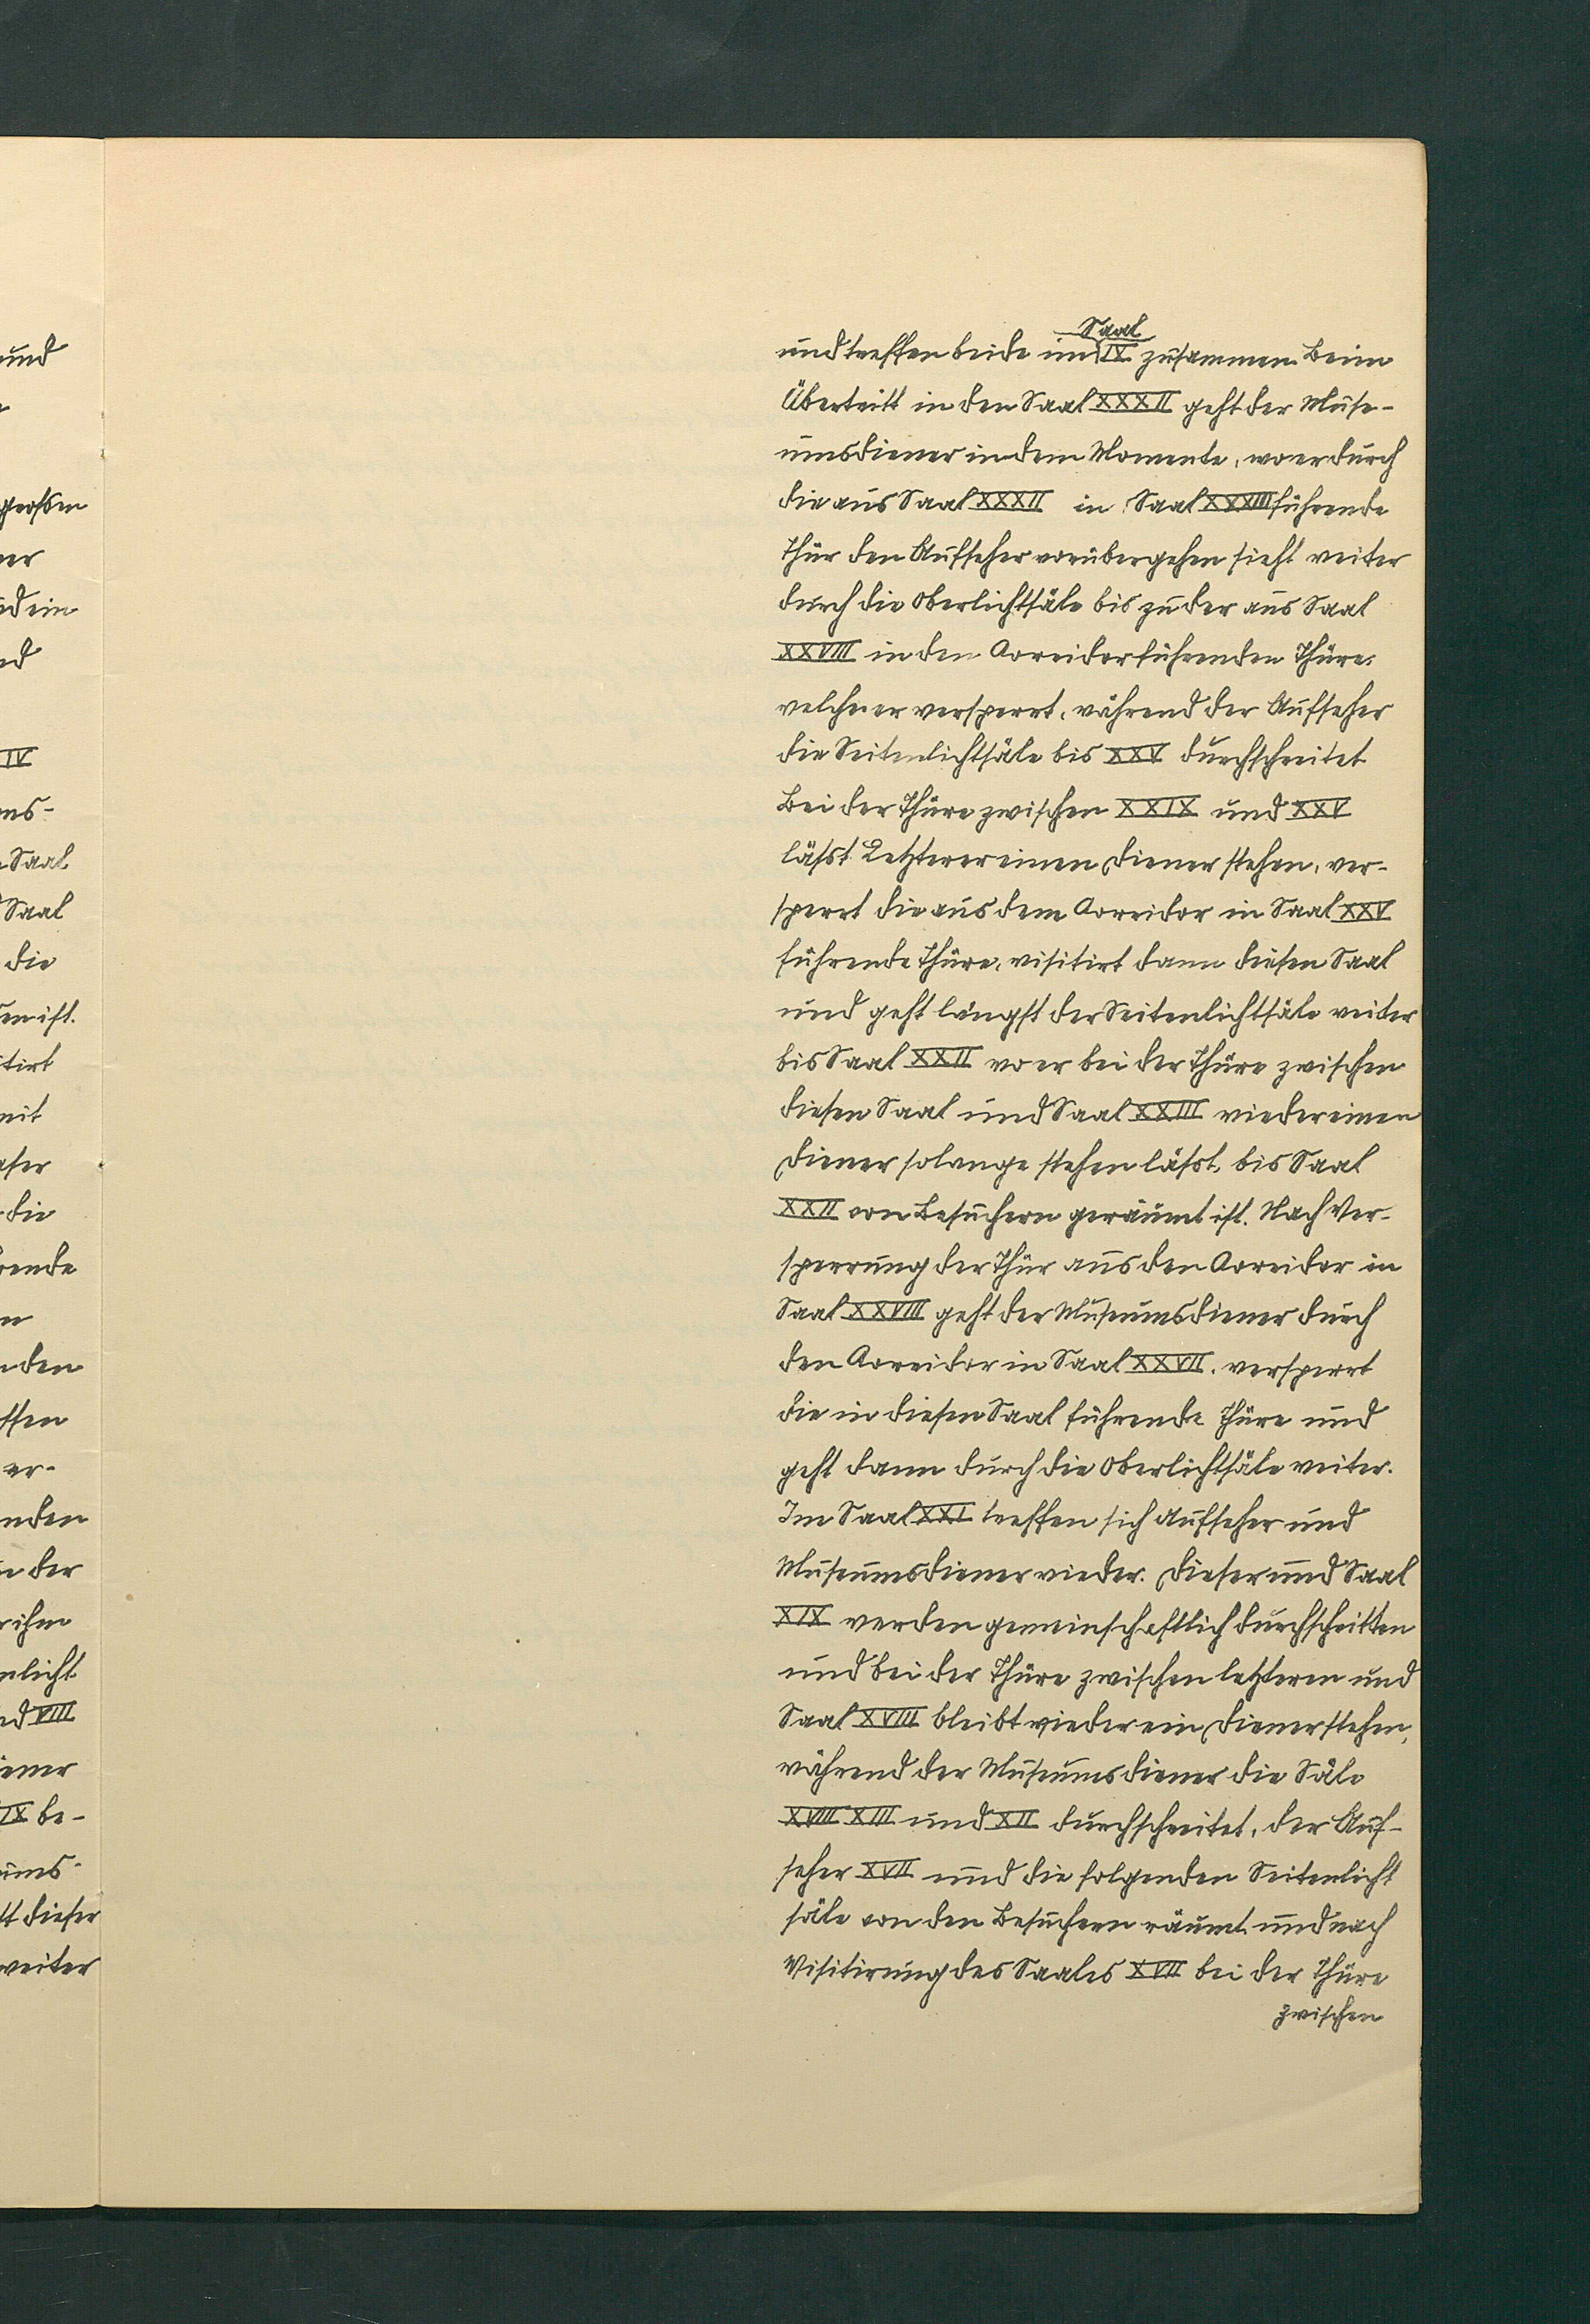 und
großen
ner
und ein
und
IV
ums-
Saal
Saal
die
ist.
tirt
mit
die
rende
n
den
ssen
er-
nden
der
ihm
nlicht
und VIII
iener
IX be-
ums-
tt dieser
weiter
Saal
und treffen beide im IX zusammen. Beim
Übertritt in den Saal XXXII geht der Muse-
umsdiener in dem Momente, wo er durch
die aus Saal XXXII in Saal XXXIII führende
Thür den Aufseher vorübergehen sieht weiter
durch die Oberlichtsäle bis zu der aus Saal
XXVIII in den Corridor führenden Thüre,
welche er versperrt, während der Aufseher
die Seitenlichtsäle bis XXV durchschreitet
Bei der Thüre zwischen XXIX und XXV
läßt Letzterer einen Diener stehen, ver-
sperrt die aus dem Corridor in Saal XXV
führende Thüre, visitirt dann diesen Saal
und geht längst der Seitenlichtsäle weiter
bis Saal XXII wo er bei der Thüre zwischen
diesen Saal und Saal XXIII wieder einen
Diener solange stehen läßt, bis Saal
XXII von Besuchern geräumt ist. Nach Ver-
sperrung der Thür aus den Corridor in
Saal XXVIII geht der Museumsdiener durch
den Corridor in Saal XXVII, versperrt
die in diesen Saal führende Thüre und
geht dann durch die Oberlichtsäle weiter.
Im Saal XXI treffen sich Aufseher und
Museumsdiener wieder. Dieser und Saal
XIX werden gemeinschaftlich durchschritten
und bei der Thüre zwischen letzteren und
Saal XVIII bleibt wieder ein Diener stehen,
während der Museumsdiener die Säle
XVIII XIII und XII durchschreitet, der Auf-
seher XVII und die folgenden Seitenlicht
säle von den Besuchern räumt und nach
Visitirung des Saales XVII bei der Thüre
zwischen